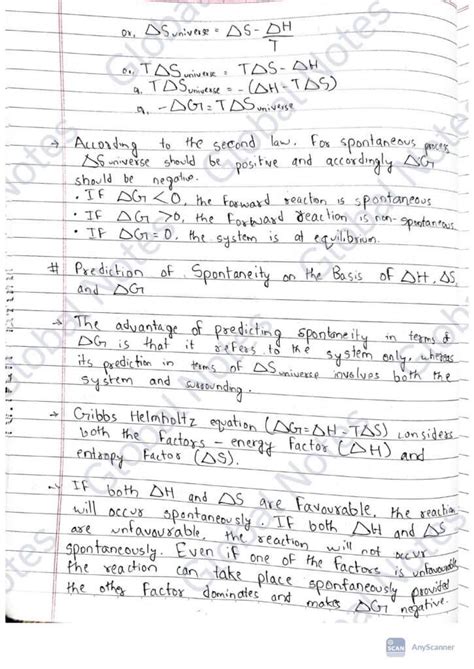 or, ΔS universe = ΔS - ΔH/T
or, TΔS universe = TΔS - ΔH
a, TΔS universe = -(ΔH - TΔS)
a, -ΔG = TΔS universe
→ According to the second law. For spontaneous process
ΔS universe should be positive and accordingly ΔG
should be negative.
• IF ΔG < 0, the forward reaction is spontaneous
• IF ΔG > 0, the forward reaction is non-spontaneous
• IF ΔG = 0, the system is at equilibrium.
# Prediction of Spontaneity on the Basis of ΔH, ΔS
and ΔG
→ The advantage of predicting spontaneity in terms of
ΔG is that it refers to the system only, whereas
its prediction in terms of ΔS universe involves both the
system and surrounding.
→ Gribbs Helmholtz equation (ΔG = ΔH - TΔS) considers
both the factors - energy factor (ΔH) and
entropy factor (ΔS).
→ IF both ΔH and ΔS are favourable, the reaction
will occur spontaneously. IF both ΔH and ΔS
are unfavourable, the reaction will not occur
spontaneously. Even if one of the factors is unfavourable
the reaction can take place spontaneously provided
the other factor dominates and makes ΔG negative.
Global Notes
SCAN AnyScanner